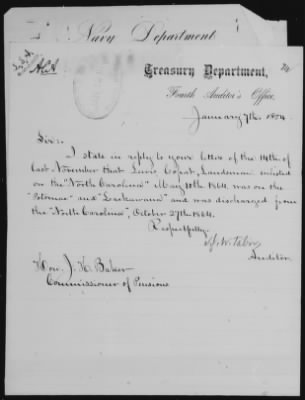 Navy Department
Treasury Department,
Fourth Auditor's Office,
January 7th, 1874
Sir:
I state in reply to your letter of the 14th of
last November that Lewis Coput, Landsman enlisted
on the "North Carolina" May 10th 1864, was on the
"Potomac" and "Lackawanna" and was discharged from
the "North Carolina", October 27th 1864.
Respectfully,
Auditor.
Hon. J. H. Baker
Commissioner of Pensions